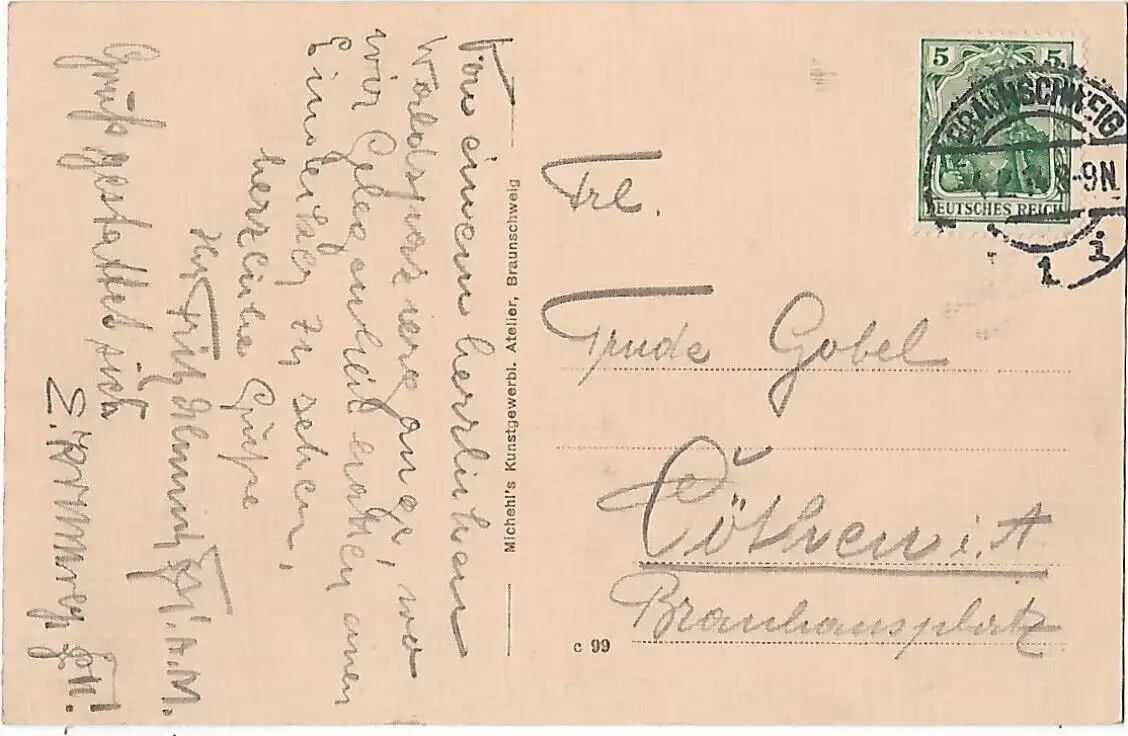 Von einem herrlichen
Waldspaziergange, wo
wir Gelegenheit hatten einen
zu sehen,
herzliche Grüße
Fritz
Gruß gestattet sich
Michehl's Kunstgewerbl. Atelier, Braunschweig
5 5
DEUTSCHES REICH
BRAUNSCHWEIG
-9N.
1 i
Frl.
Trude Gobel
Cöthen i. A
Brauhausplatz
c 99